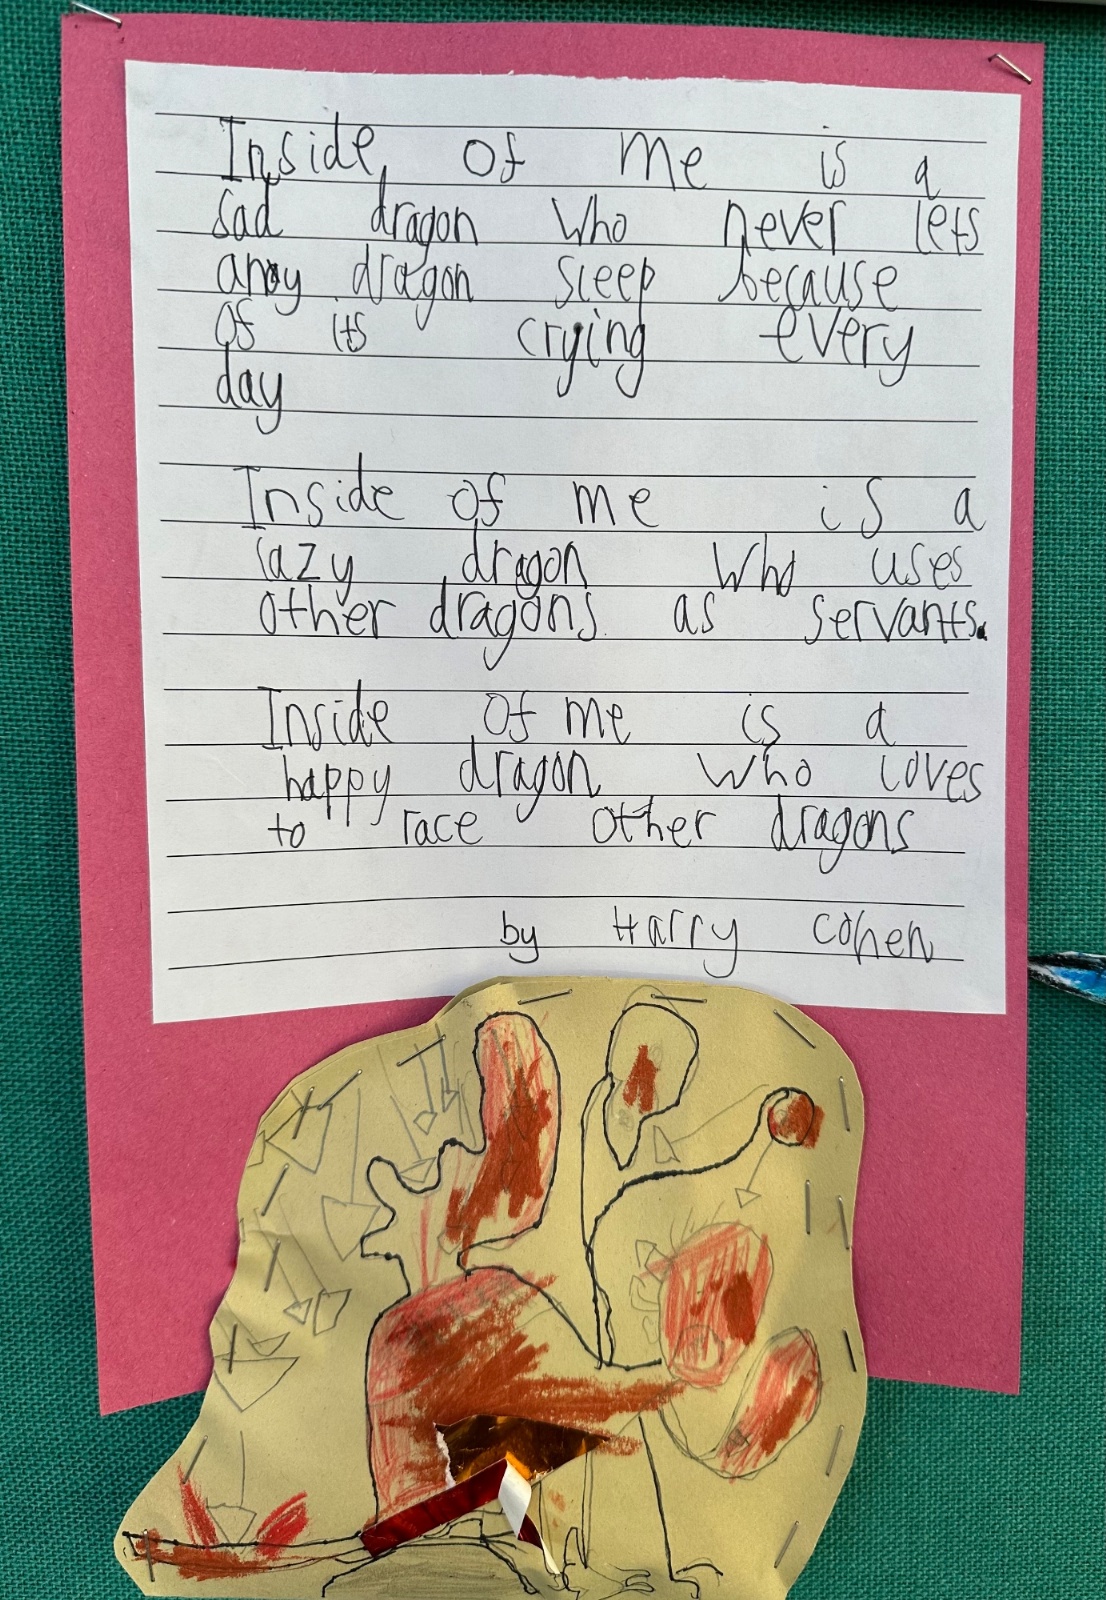 Inside of me is a
sad dragon who never lets
anoy dragon sleep because
of its crying every
day
Inside of me is a
lazy dragon who uses
other dragons as servants.
Inside of me is a
happy dragon who loves
to race other dragons
by Harry Cohen